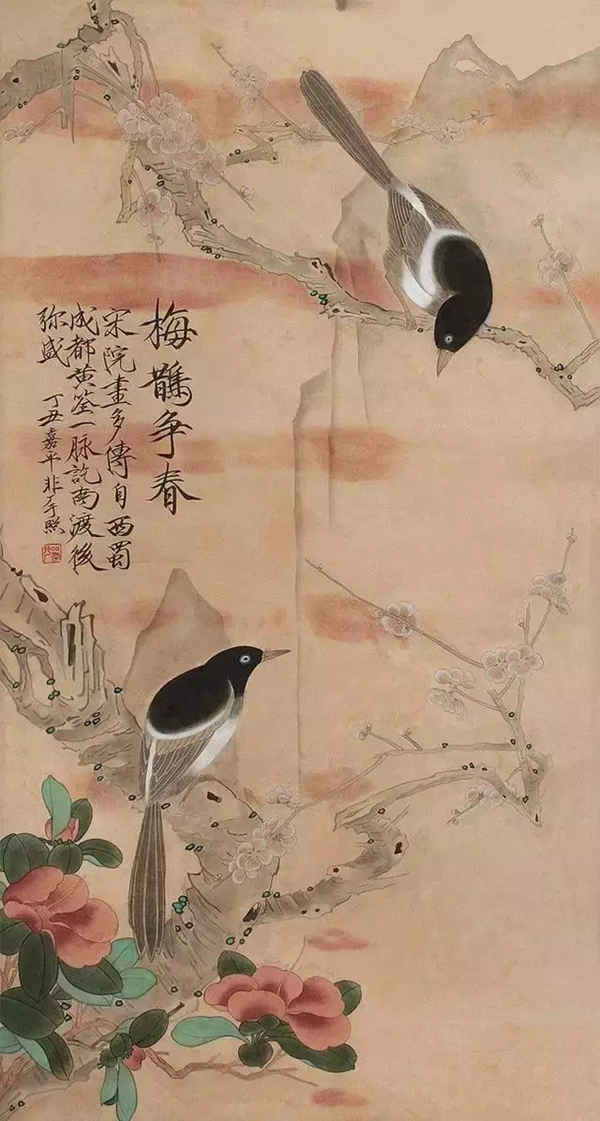 梅鵲争春
宋院畫多傳自西蜀
成都黄筌一脉訖南渡後
弥盛 丁丑嘉平非厂照